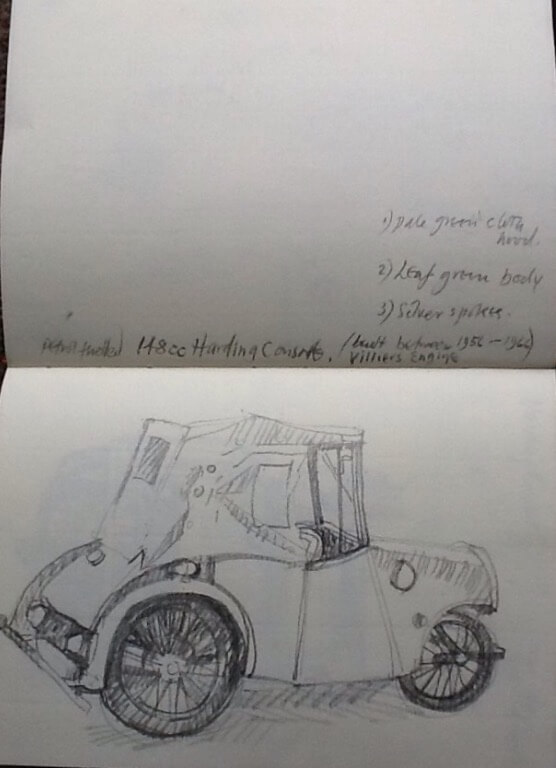 1) Pale green cloth
hood.
2) Leaf green body
3) Silver spokes.
148cc Harding Consort, (built between 1956 – 1966
Villiers Engine